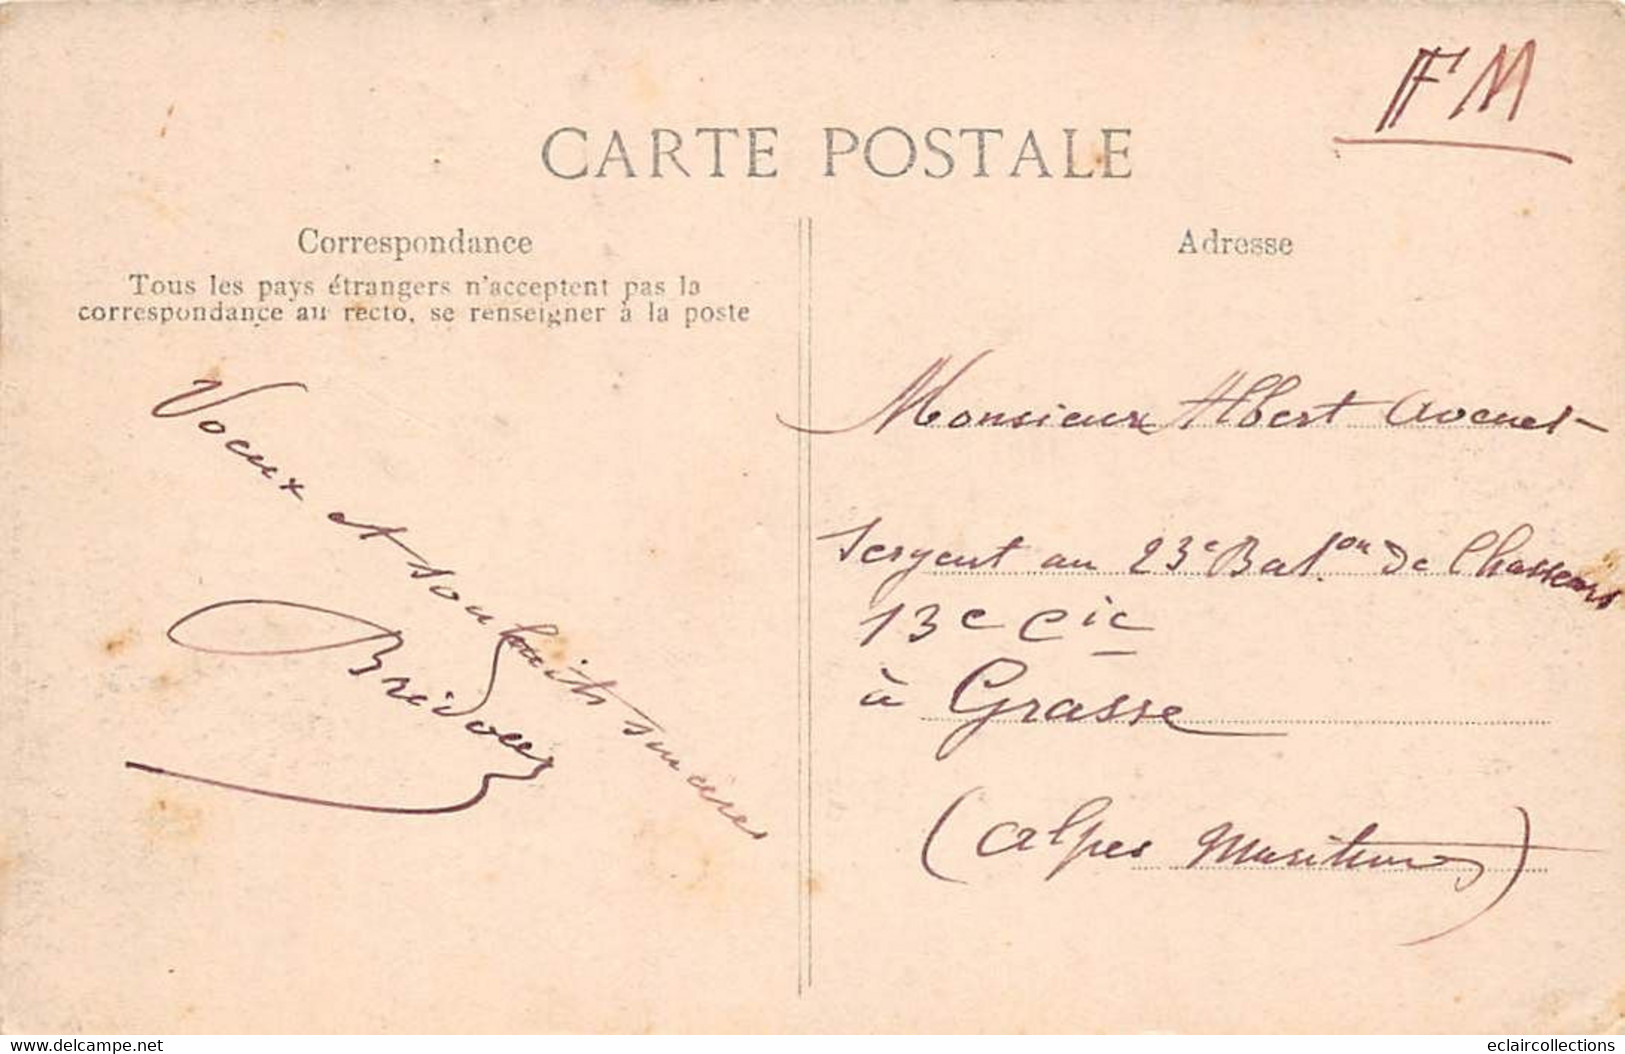 FM
CARTE POSTALE
Correspondance
Tous les pays étrangers n'acceptent pas la
correspondance au recto, se renseigner à la poste
Voeux et souhaits sincères
Bridoux
Adresse
Monsieur Albert Avenel
Sergent au 23e Bat.on de Chasseurs
13e Cie
à Grasse
(Alpes Maritimes)
www.delcampe.net
eclaircollections